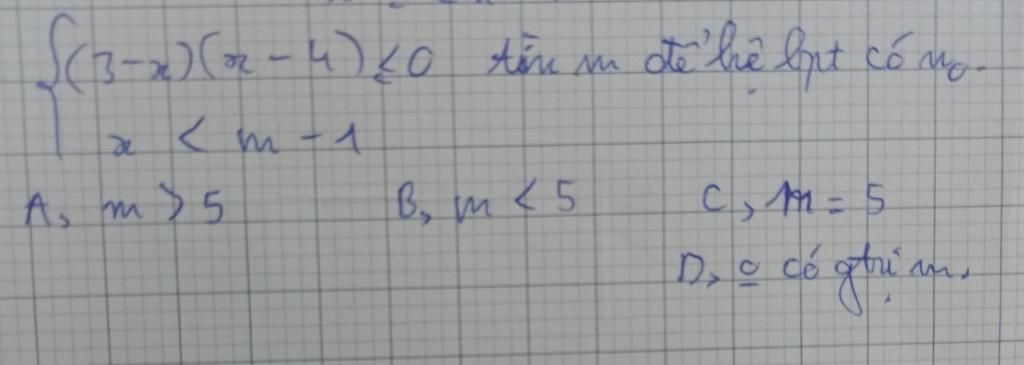 {(3-x)(x-4) ≤ 0 tìm m để hệ bpt có no.
x < m - 1
A, m > 5 B, m < 5 C, m = 5
D, o có gtrị m.